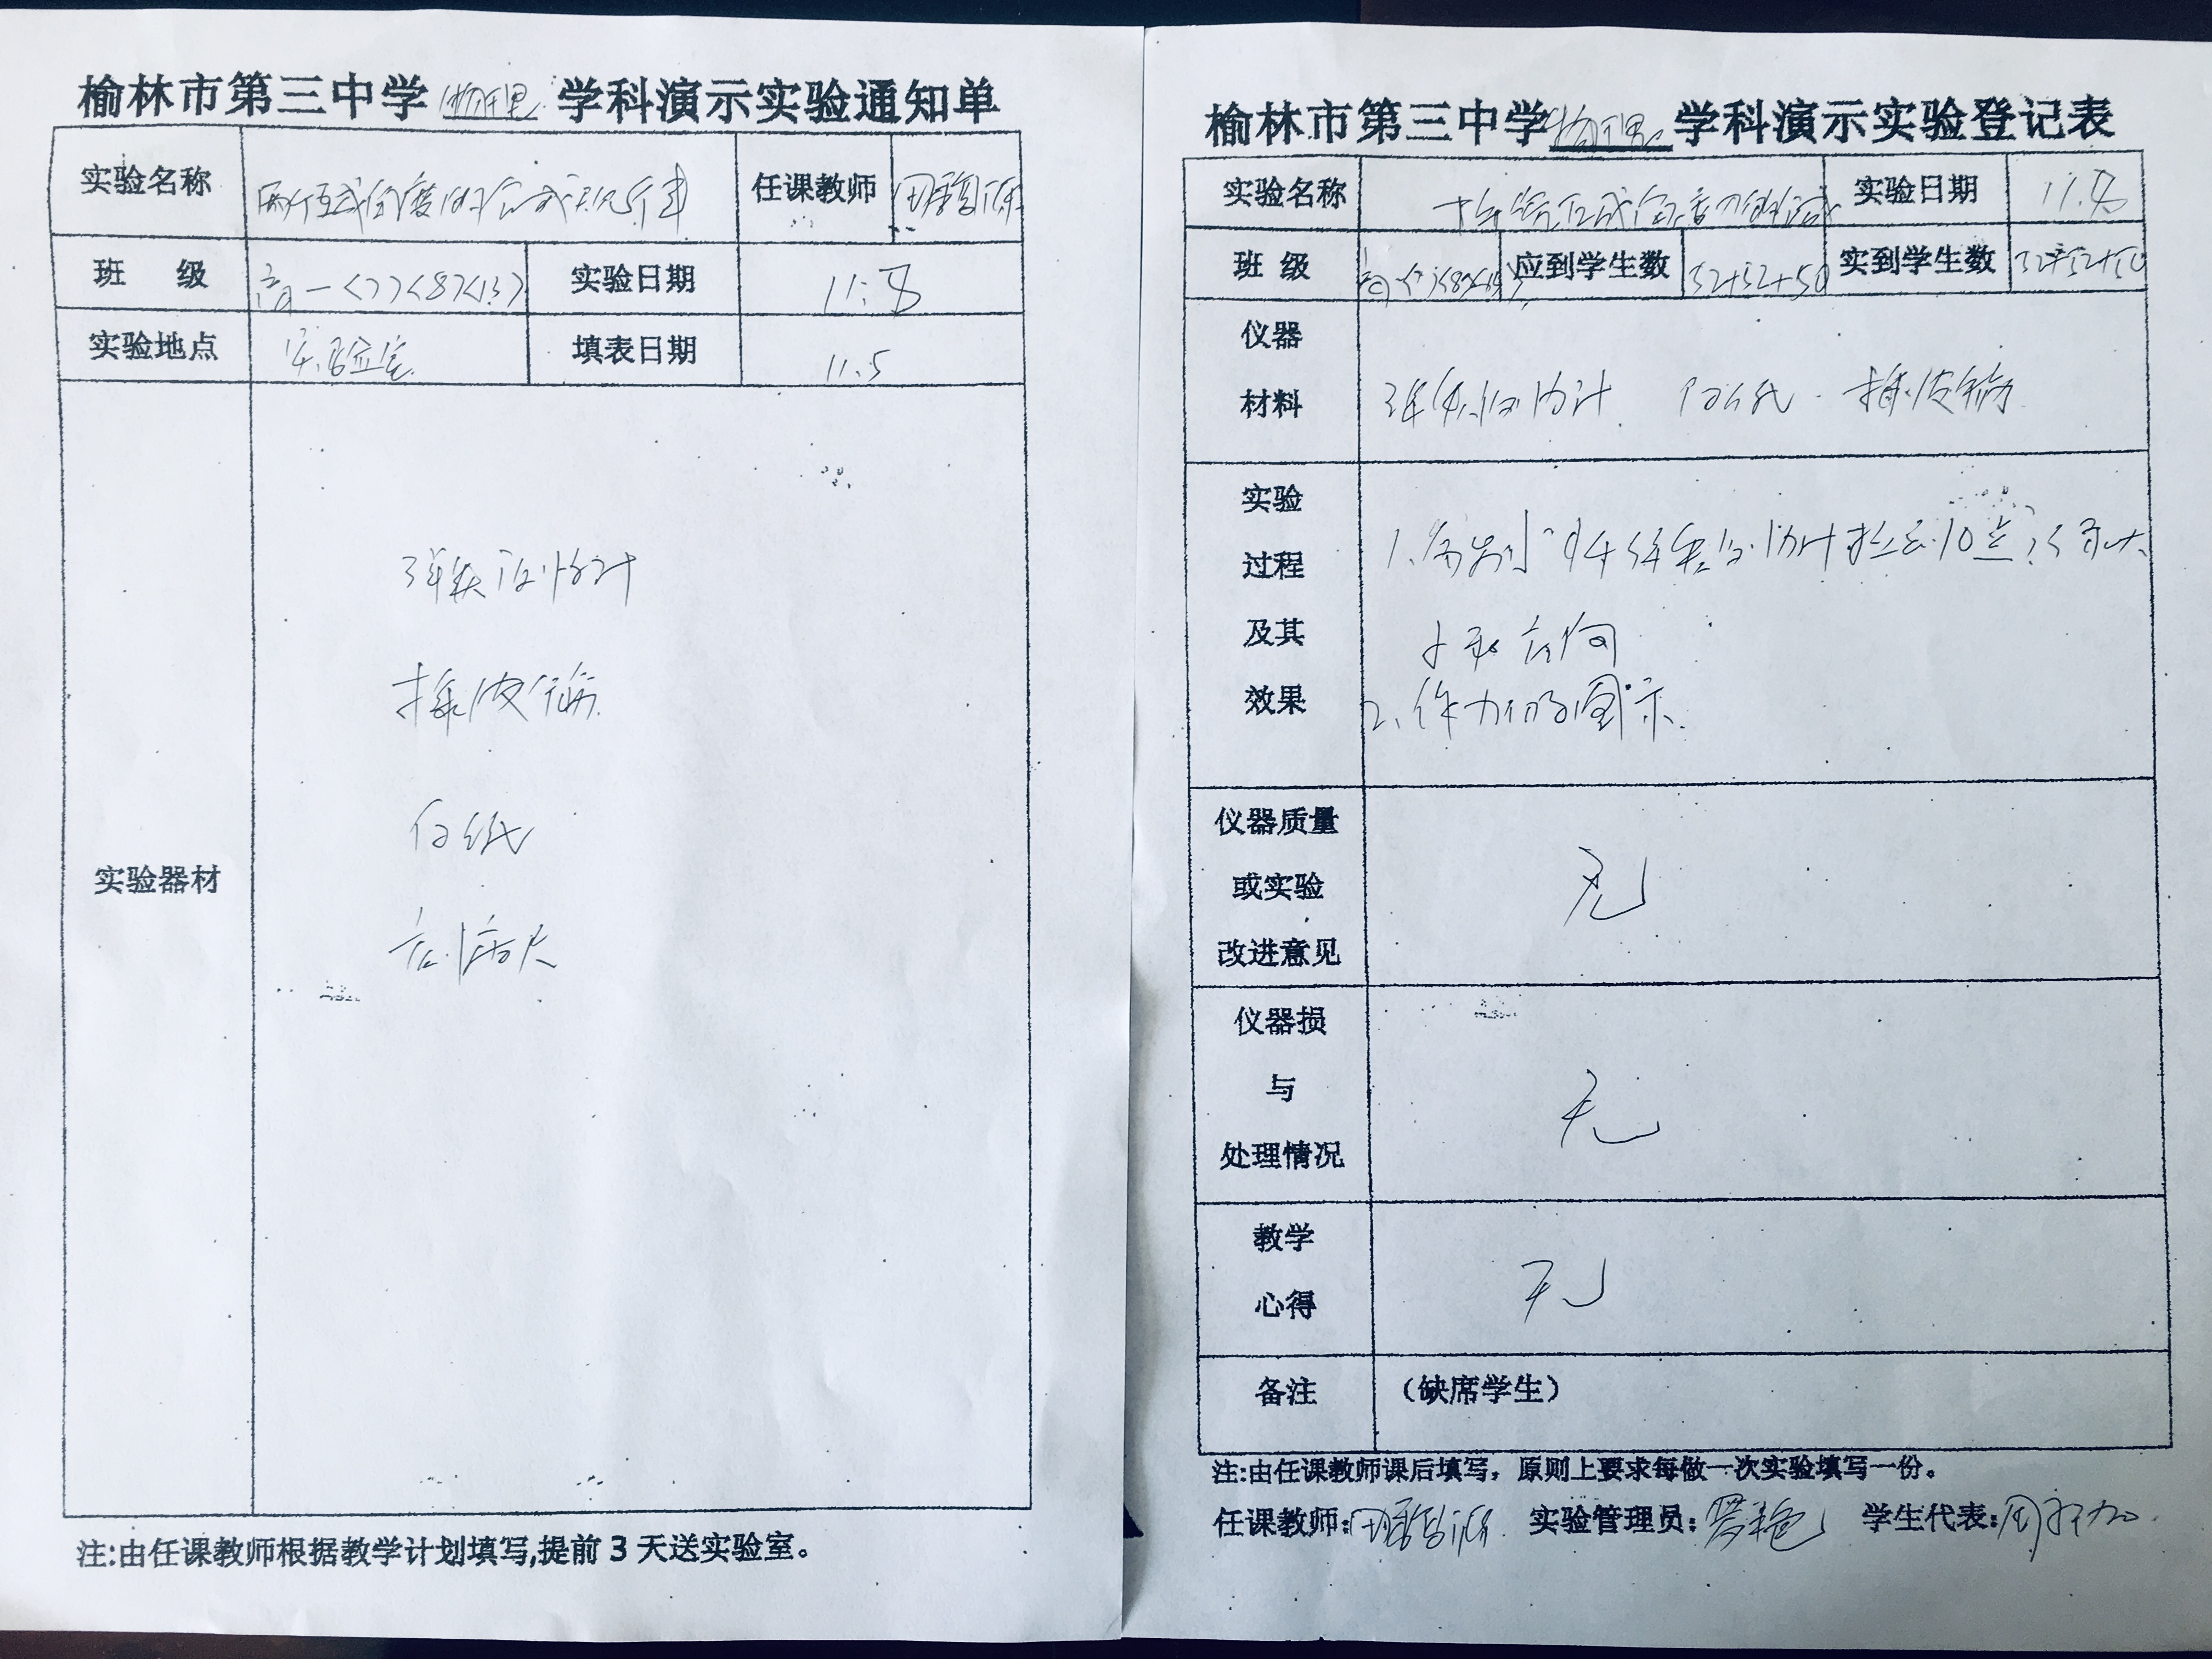 榆林市第三中学物理学科演示实验通知单
实验名称 两个互成角度的合成 任课教师
班 级 高一<7><8><13> 实验日期 11.8
实验地点 实验室 填表日期 11.5
实验器材
弹簧测力计
橡皮筋
白纸
刻度尺
注:由任课教师根据教学计划填写,提前3天送实验室。
榆林市第三中学物理学科演示实验登记表
实验名称 探究互成角度力的合成 实验日期 11.8
班 级 高一<7><8><13> 应到学生数 52+52+50 实到学生数 52+52+50
仪器
材料
弹簧测力计 白纸. 橡皮筋
实验
过程
及其
效果
1.分别用 弹簧测力计拉至10点
小和方向
2.作力的图示.
仪器质量
或实验
改进意见
无
仪器损
与
处理情况
无
教学
心得
无
备注 (缺席学生)
注:由任课教师课后填写,原则上要求每做一次实验填写一份。
任课教师: 实验管理员: 学生代表: